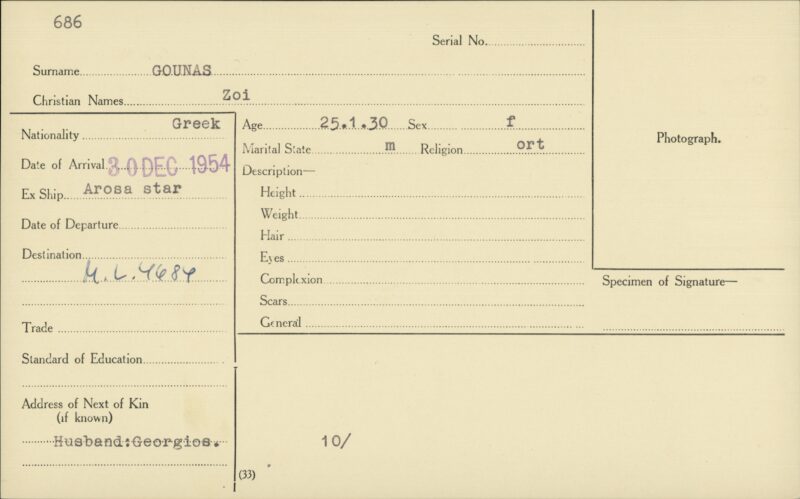 686
Serial No.
Surname GOUNAS
Christian Names Zoi
Nationality Greek
Date of Arrival 30 DEC 1954
Ex Ship Arosa star
Date of Departure
Destination
M.L. 4684
Trade
Standard of Education
Address of Next of Kin
(if known)
Husband:Georgios.
Age 25.1.30 Sex f
Marital State m Religion ort
Description—
Height
Weight
Hair
Eyes
Complexion
Scars
General
10/
(33)
Photograph.
Specimen of Signature—